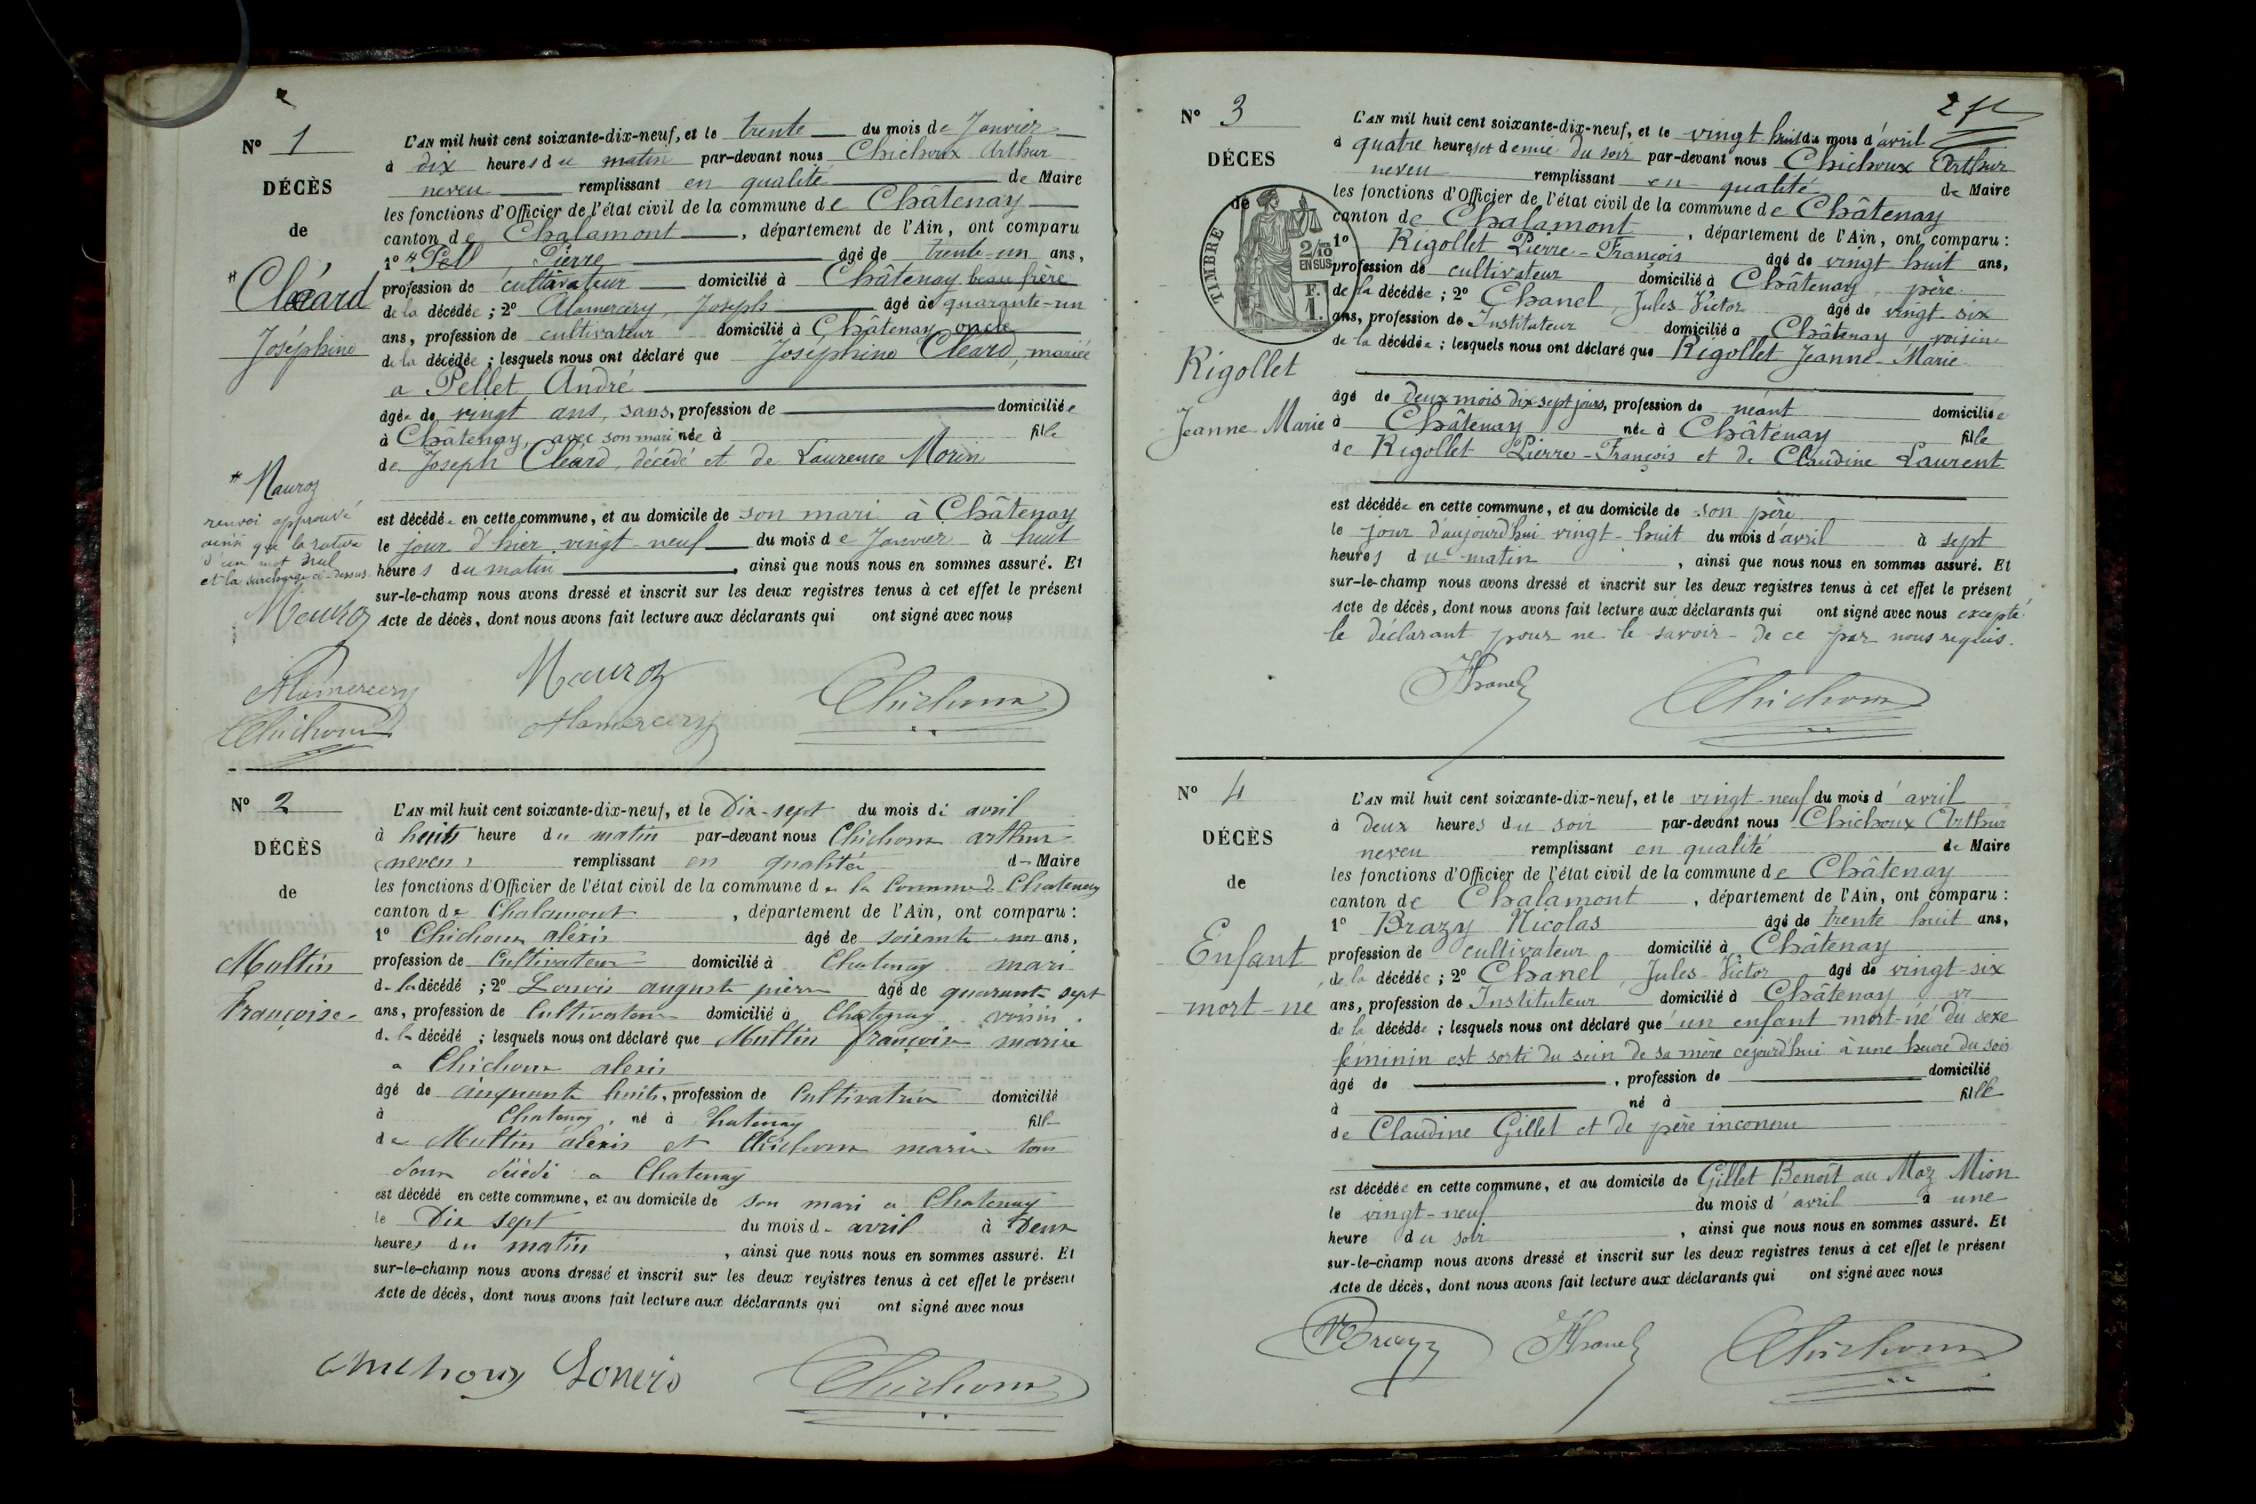 N° 1
DÉCÈS
de
* Cléard
Joséphine
* Mauroz
renvoi approuvé
ainsi que la rature
d'un mot nul
et la surcharge ci-dessus
Mauroz
Alamercery
Chichoux
L'AN mil huit cent soixante-dix-neuf, et le trente du mois de Janvier
à dix heures du matin par-devant nous Chichoux Arthur
neveu remplissant en qualité de Maire
les fonctions d'Officier de l'état civil de la commune de Châtenay
canton de Chalamont, département de l'Ain, ont comparu
1° * Pierre âgé de trente-un ans,
profession de cultivateur domicilié à Châtenay beau frère
de la décédée ; 2° Alamercery, Joseph âgé de quarante-un
ans, profession de cultivateur domicilié à Châtenay oncle
de la décédée ; lesquels nous ont déclaré que Joséphine Cléard, mariée
a Pellet André
âgée de vingt ans, sans, profession de domiciliée
à Châtenay, avec son mari née à fille
de Joseph Cléard, décédé et de Laurence Morin
est décédée en cette commune, et au domicile de son mari à Châtenay
le jour d'hier vingt-neuf du mois de Janvier à huit
heures du matin, ainsi que nous nous en sommes assuré. Et
sur-le-champ nous avons dressé et inscrit sur les deux registres tenus à cet effet le présent
Acte de décès, dont nous avons fait lecture aux déclarants qui ont signé avec nous
Mauroz
Alamercery
Chichoux
N° 2
DÉCÈS
de
Multin
Françoise
L'AN mil huit cent soixante-dix-neuf, et le Dix-sept du mois di avril
à huits heure du matin par-devant nous Chichoux arthur
neveu remplissant en qualitée de Maire
les fonctions d'Officier de l'état civil de la commune de la Commune d Chatenay
canton de Chalamont, département de l'Ain, ont comparu :
1° Chichoux aléxis âgé de soixante un ans,
profession de Cultivateur domicilié à Chatenay mari
de la décédé ; 2° Louvis auguste pierre âgé de quarante sept
ans, profession de Cultivateur domicilié à Chatenay voisin
de la décédé ; lesquels nous ont déclaré que Multin françoise mariée
a Chichoux alexis
âgé de cinquante huits, profession de Cultivatrice domicilié
à Chatenay, né à Chatenay fille
de Multin aléxis et Chichoux marie tous
deux à Chatenay
est décédé en cette commune, et au domicile de son mari a Chatenay
le Dix sept du mois de avril à Deux
heures du matin, ainsi que nous nous en sommes assuré. Et
sur-le-champ nous avons dressé et inscrit sur les deux registres tenus à cet effet le présent
Acte de décès, dont nous avons fait lecture aux déclarants qui ont signé avec nous
Chichoux
N° 3
DÉCES
de
TIMBRE
2/10
EN SUS
F.
1.
Rigollet
Jeanne-Marie
L'AN mil huit cent soixante-dix-neuf, et le vingt huit du mois d'avril
à quatre heures et demie du soir par-devant nous Chichoux Arthur
neveu remplissant en qualité de Maire
les fonctions d'Officier de l'état civil de la commune de Châtenay
canton de Chalamont, département de l'Ain, ont comparu :
1° Rigollet Pierre-François âgé de vingt-huit ans,
profession de cultivateur domicilié à Châtenay père
de la décédée ; 2° Chanel, Jules-Victor âgé de vingt-six
ans, profession de Instituteur domicilié à Châtenay voisin
de la décédée ; lesquels nous ont déclaré que Rigollet Jeanne-Marie
âgé de deux mois dix sept jours, profession de néant domiciliée
à Châtenay née à Châtenay fille
de Rigollet Pierre-François et de Claudine Laurent
est décédée en cette commune, et au domicile de son père
le jour d'aujourd'hui vingt-huit du mois d'avril à sept
heures du matin, ainsi que nous nous en sommes assuré. Et
sur-le-champ nous avons dressé et inscrit sur les deux registres tenus à cet effet le présent
Acte de décès, dont nous avons fait lecture aux déclarants qui ont signé avec nous excepté
le déclarant pour ne le savoir de ce par nous requis.
JChanel
Chichoux
N° 4
DÉCÈS
de
Enfant
mort-né
L'AN mil huit cent soixante-dix-neuf, et le vingt-neuf du mois d'avril
à deux heures du soir par-devant nous Chichoux Arthur
neveu remplissant en qualité de Maire
les fonctions d'Officier de l'état civil de la commune de Châtenay
canton de Chalamont, département de l'Ain, ont comparu :
1° Brazy Nicolas âgé de trente huit ans,
profession de cultivateur domicilié à Châtenay
de la décédée ; 2° Chanel, Jules-Victor âgé de vingt-six
ans, profession de Instituteur domicilié à Châtenay
de la décédée ; lesquels nous ont déclaré que un enfant mort-né du sexe
féminin est sorti du sein de sa mère cejourd'hui à une heure du soir
âgé de, profession de domicilié
à né à fille
de Claudine Gillet et de père inconnu
est décédée en cette commune, et au domicile de Gillet Benoît au Maz Mion
le vingt-neuf du mois d'avril à une
heure du soir, ainsi que nous nous en sommes assuré. Et
sur-le-champ nous avons dressé et inscrit sur les deux registres tenus à cet effet le présent
Acte de décès, dont nous avons fait lecture aux déclarants qui ont signé avec nous
NBrazy
JChanel
Chichoux